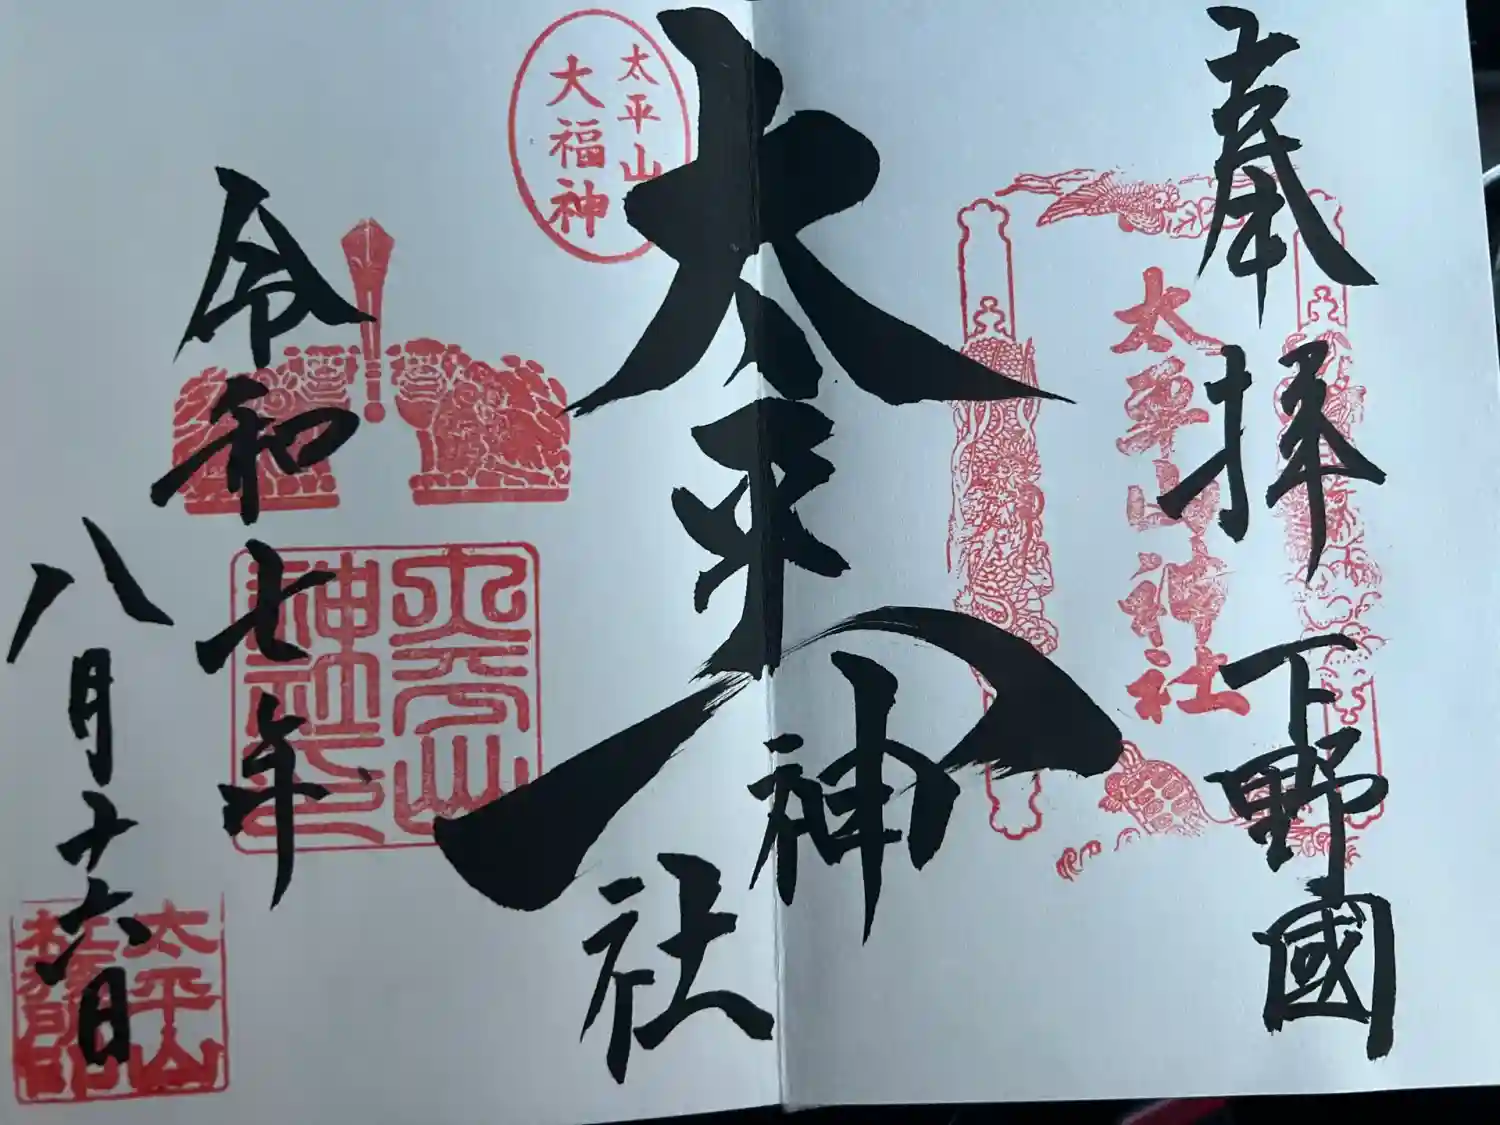 奉拝 下野國
太平山神社
太平山神社
太平山
大福神
太平山
神社印
令和七年
八月十六日
太平山
社務所印